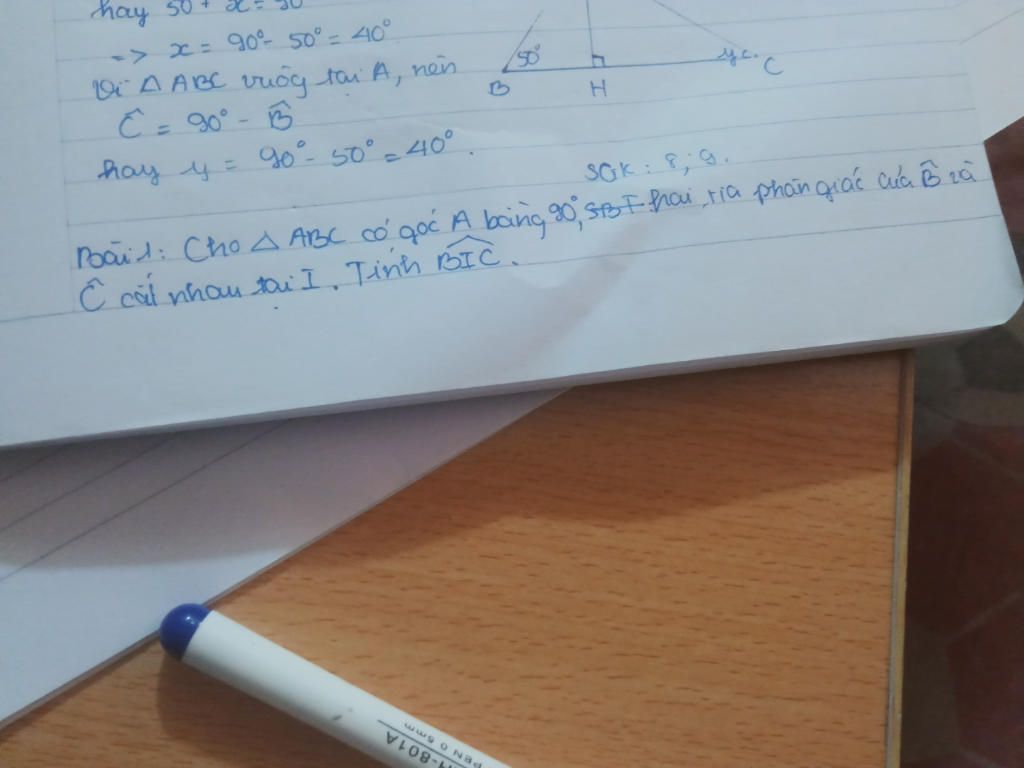 hay 50° + x = 90°
=> x = 90° - 50° = 40°
Vì △ ABC vuông tại A, nên
Ĉ = 90° - B̂
hay y = 90° - 50° = 40°.
50°
y
C
B
H
SGK : 8 ; 9.
Bài 1: Cho △ ABC có góc A bằng 90°, hai tia phân giác của B̂ và
Ĉ cắt nhau tại I. Tính BIC.
-801A
PEN 0.5mm